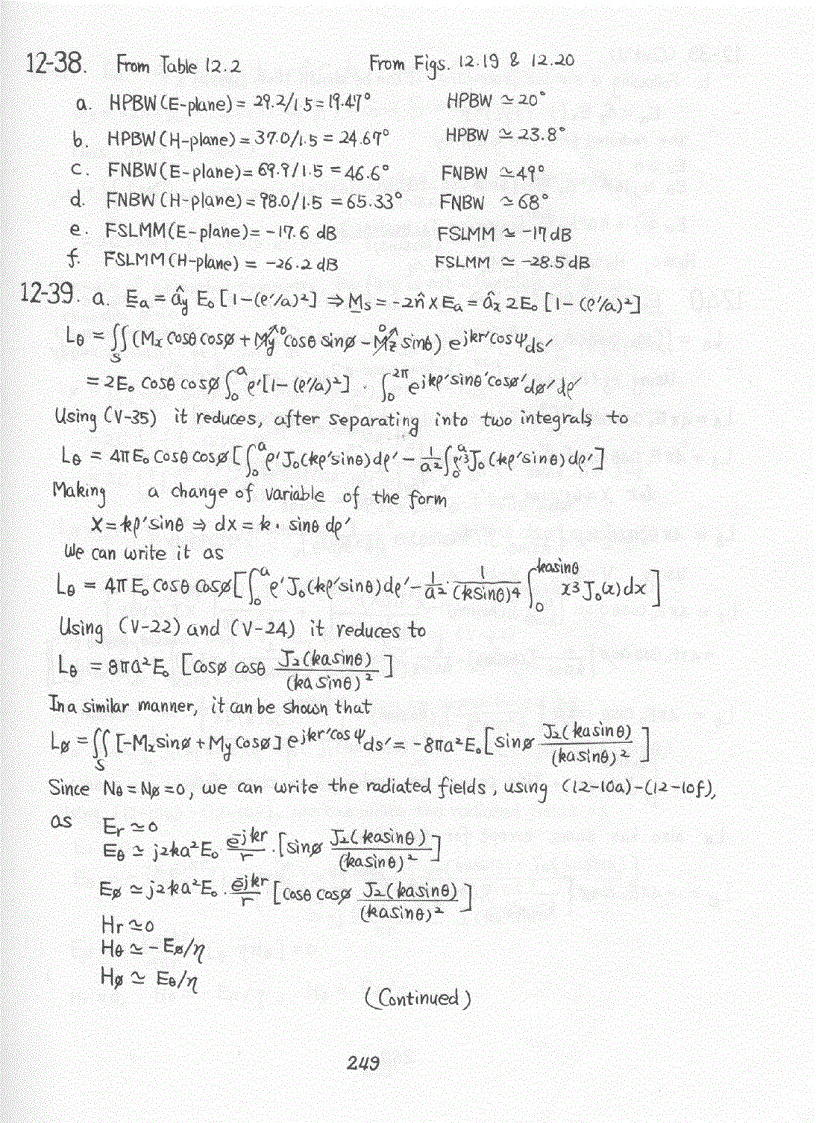 12-38. From Table 12.2 From Figs. 12.19 & 12.20
a. HPBW(E-plane) = 29.2/1.5 = 19.47° HPBW ≃ 20°
b. HPBW(H-plane) = 37.0/1.5 = 24.67° HPBW ≃ 23.8°
c. FNBW(E-plane) = 69.9/1.5 = 46.6° FNBW ≃ 49°
d. FNBW(H-plane) = 98.0/1.5 = 65.33° FNBW ≃ 68°
e. FSLMM(E-plane) = -17.6 dB FSLMM ≃ -17 dB
f. FSLMM(H-plane) = -26.2 dB FSLMM ≃ -28.5 dB
12-39. a. Ea = ây E0 [1-(ρ'/a)²] ⇒ Ms = -2n̂ x Ea = âx 2E0 [1-(ρ'/a)²]
Lθ = ∬S (Mx cosθ cosø + My↗0 cosθ sinø - Mz↗0 sinθ) e^jkr'cosψ ds'
= 2E0 cosθ cosø ∫0^a ρ'[1-(ρ'/a)²] · ∫0^2π e^jkρ'sinθ'cosø' dø' dρ'
Using (V-35) it reduces, after separating into two integrals to
Lθ = 4πE0 cosθ cosø [∫0^a ρ' J0(kρ'sinθ)dρ' - 1/a² ∫0^a ρ'³ J0(kρ'sinθ)dρ']
Making a change of variable of the form
X = kρ'sinθ ⇒ dx = k · sinθ dρ'
We can write it as
Lθ = 4πE0 cosθ cosø [∫0^a ρ' J0(kρ'sinθ)dρ' - 1/a² · 1/(ksinθ)⁴ ∫0^kasinθ x³ J0(x)dx]
Using (V-22) and (V-24) it reduces to
Lθ = 8πa²E0 [cosø cosθ J2(kasinθ)/(kasinθ)²]
In a similar manner, it can be shown that
Lø = ∬S [-Mx sinø + My cosø] e^jkr'cosψ ds' = -8πa²E0 [sinø J2(kasinθ)/(kasinθ)²]
Since Nθ = Nø = 0, we can write the radiated fields, using (12-10a)-(12-10f),
as Er ≃ 0
Eθ ≃ j2ka²E0 e^-jkr/r · [sinø J2(kasinθ)/(kasinθ)²]
Eø ≃ j2ka²E0 · e^-jkr/r [cosθ cosø J2(kasinθ)/(kasinθ)²]
Hr ≃ 0
Hθ ≃ -Eø/η
Hø ≃ Eθ/η
(Continued)
249